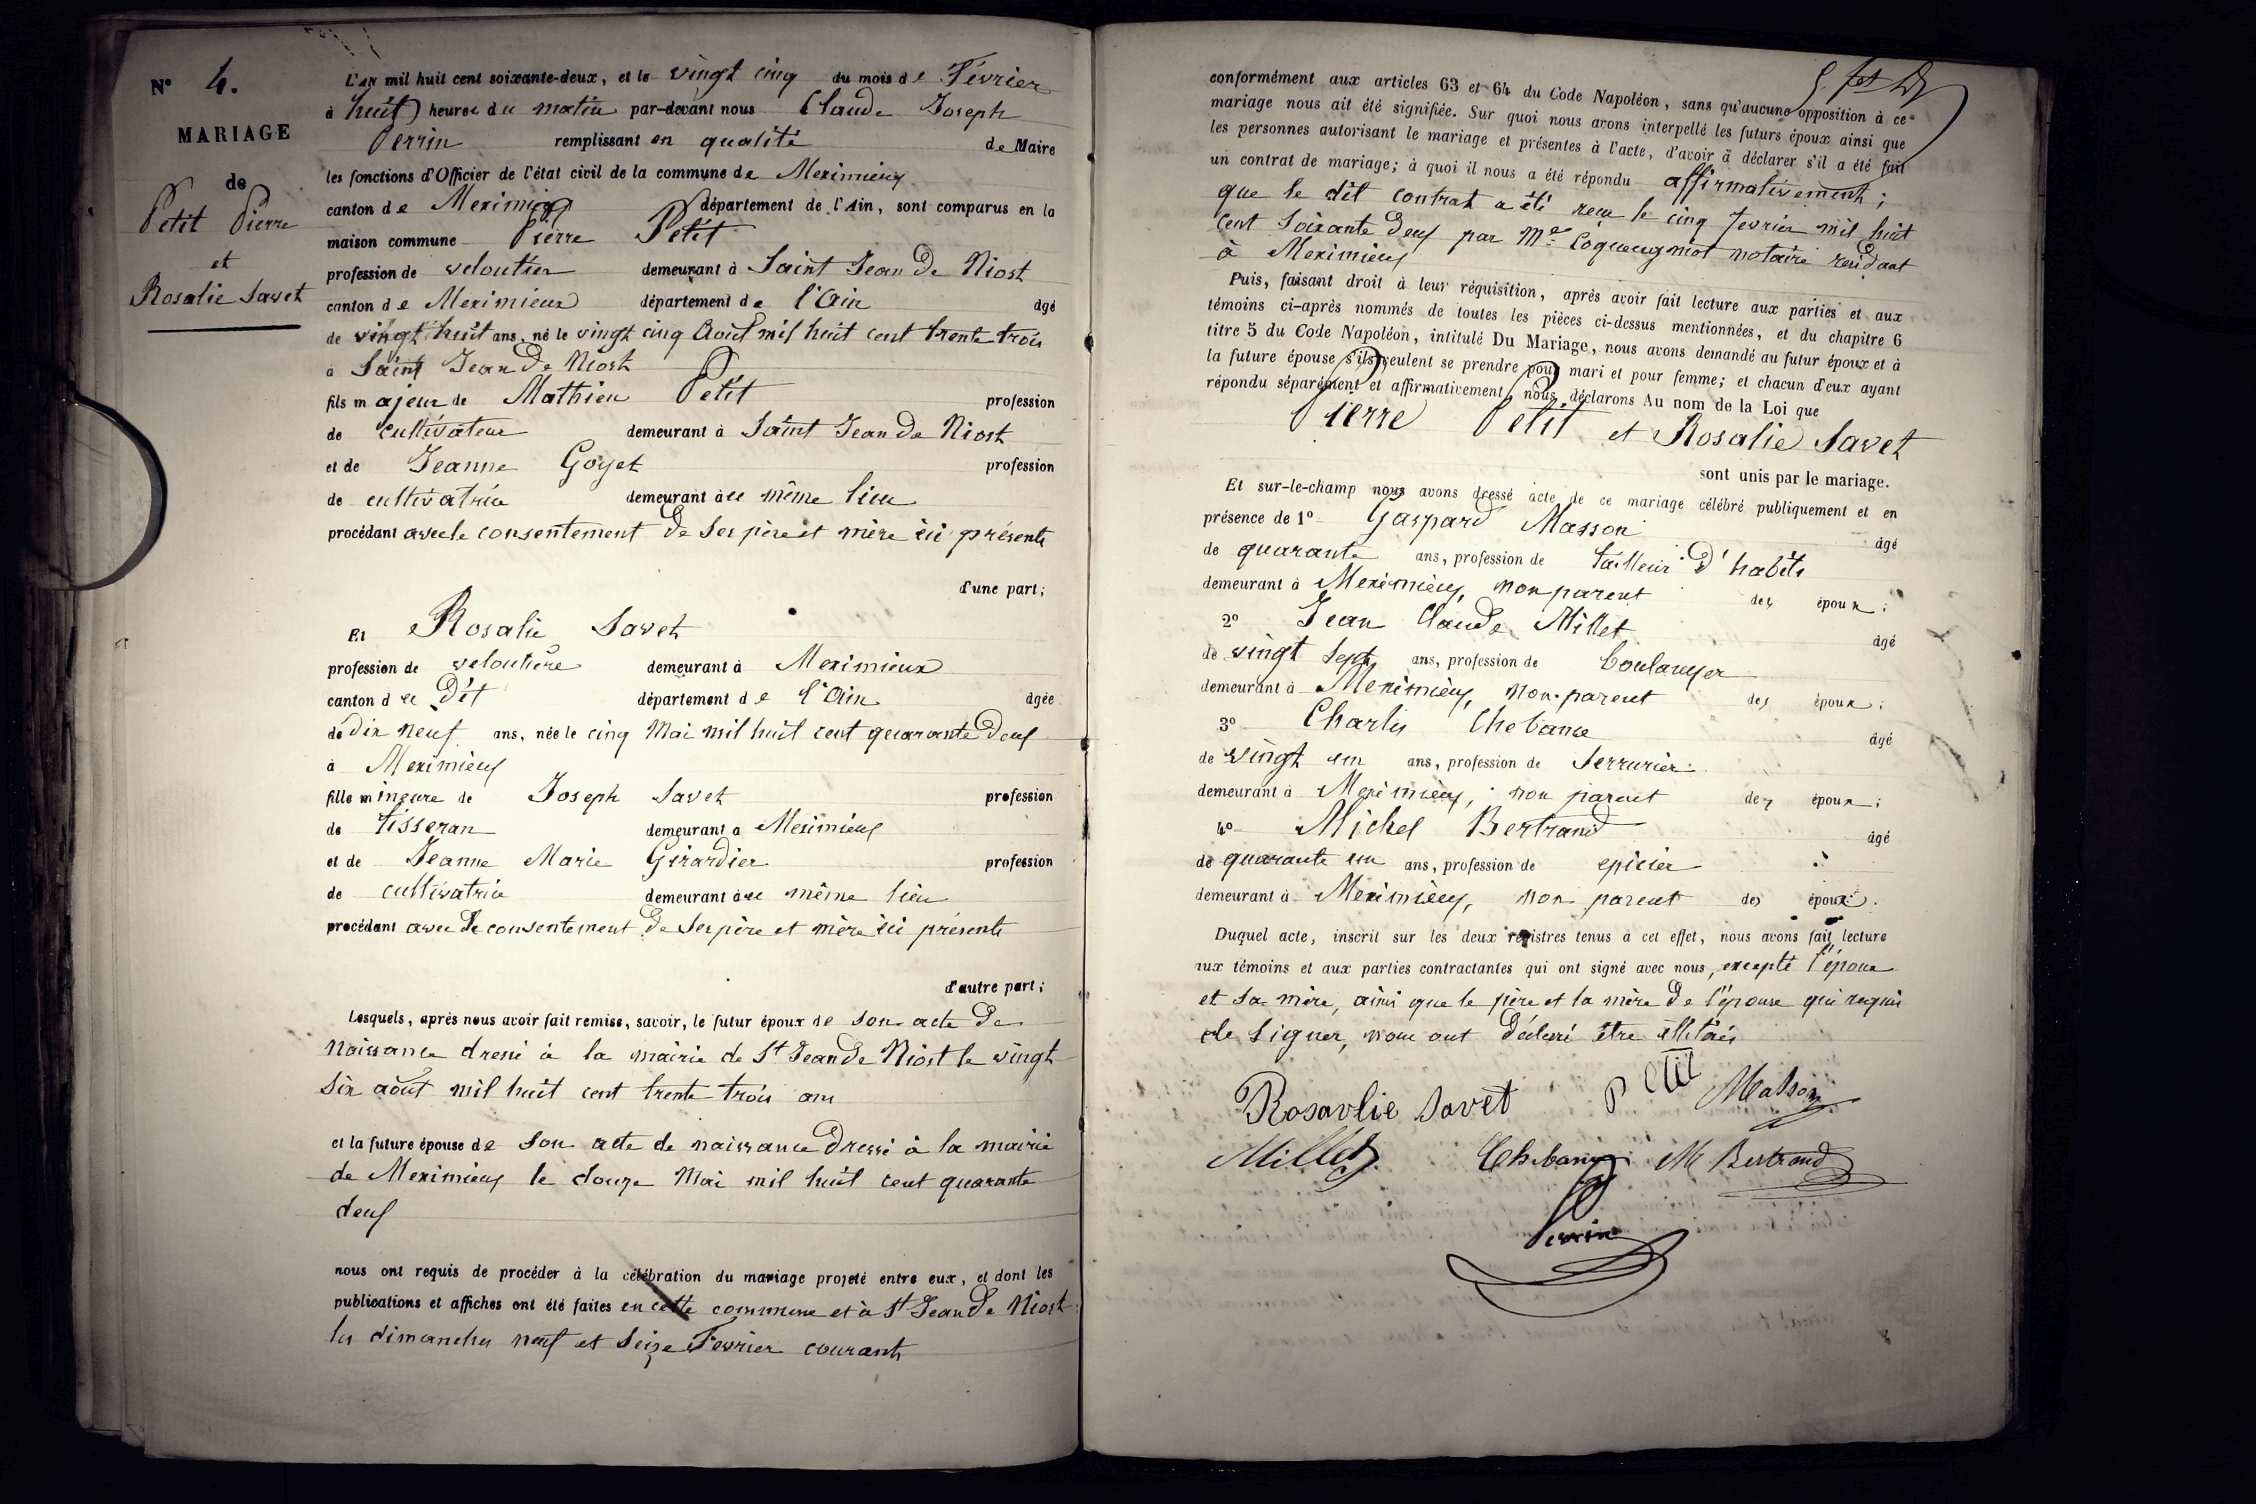 N° 4.
MARIAGE
de
Petit Pierre
et
Rosalie Savet
L'AN mil huit cent soixante-deux, et le vingt cinq du mois de Février
à huit heures du matin par-devant nous Claude Joseph
Perrin remplissant en qualité de Maire
les fonctions d'Officier de l'état civil de la commune de Meximieux
canton de Meximieux département de l'Ain, sont comparus en la
maison commune Pierre Petit
profession de veloutier demeurant à Saint Jean de Niost
canton de Meximieux département de l'Ain âgé
de vingt huit ans, né le vingt cinq Août mil huit cent trente trois
à Saint Jean de Niost
fils majeur de Mathieu Petit profession
de cultivateur demeurant à Saint Jean de Niost
et de Jeanne Goyet profession
de cultivatrice demeurant à ce même lieu
procédant avec le consentement de ses père et mère ici présents
d'une part;
Et Rosalie Savet
profession de veloutière demeurant à Meximieux
canton du dit département de l'Ain âgée
de dix neuf ans, née le cinq Mai mil huit cent quarante deux
à Meximieux
fille mineure de Joseph Savet profession
de tisseran demeurant à Meximieux
et de Jeanne Marie Girardier profession
de cultivatrice demeurant à ce même lieu
procédant avec le consentement de ses père et mère ici présents
d'autre part;
Lesquels, après nous avoir fait remise, savoir, le futur époux de son acte de
naissance dressé à la mairie de St Jean de Niost le vingt
six août mil huit cent trente trois
et la future épouse de son acte de naissance dressé à la mairie
de Meximieux le douze Mai mil huit cent quarante
deux
nous ont requis de procéder à la célébration du mariage projeté entre eux, et dont les
publications et affiches ont été faites en cette commune et à St Jean de Niost
les dimanches neuf et seize Février courant
conformément aux articles 63 et 64 du Code Napoléon, sans qu'aucune opposition à ce
mariage nous ait été signifiée. Sur quoi nous avons interpellé les futurs époux ainsi que
les personnes autorisant le mariage et présentes à l'acte, d'avoir à déclarer s'il a été fait
un contrat de mariage; à quoi il nous a été répondu affirmativement;
que le dit contrat a été reçu le cinq fevrier mil huit
cent soixante deux par Me Coqueugniot notaire résidant
à Meximieux
Puis, faisant droit à leur réquisition, après avoir fait lecture aux parties et aux
témoins ci-après nommés de toutes les pièces ci-dessus mentionnées, et du chapitre 6
titre 5 du Code Napoléon, intitulé Du Mariage, nous avons demandé au futur époux et à
la future épouse s'ils veulent se prendre pour mari et pour femme; et chacun d'eux ayant
répondu séparément et affirmativement, nous déclarons Au nom de la Loi que
Pierre Petit et Rosalie Savet
sont unis par le mariage.
Et sur-le-champ nous avons dressé acte de ce mariage célébré publiquement et en
présence de 1° Gaspard Masson âgé
de quarante ans, profession de tailleur d'habits
demeurant à Meximieux, non parent des époux;
2° Jean Claude Millet âgé
de vingt sept ans, profession de boulanger
demeurant à Meximieux, non parent des époux;
3° Charles Chebance âgé
de vingt un ans, profession de serrurier
demeurant à Meximieux, non parent des époux;
4° Michel Bertrand âgé
de quarante un ans, profession de epicier
demeurant à Meximieux, non parent des époux.
Duquel acte, inscrit sur les deux registres tenus à cet effet, nous avons fait lecture
aux témoins et aux parties contractantes qui ont signé avec nous, excepté l'époux
et sa mère, ainsi que le père et la mère de l'épouse qui requis
de signer, nous ont déclaré être illitérés
Rosavlie Savet P Etit Masson
Millet Chebance M Bertrand
Perrin